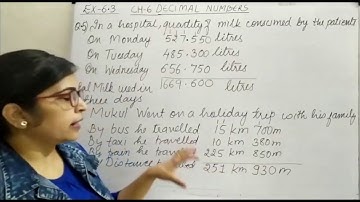 EX-6.3 CH-6 DECIMAL NUMBERS
Q-5) In a hospital, quantity of milk consumed by the patients
On Monday 527.550 litres
On Tuesday 485.300 litres
On Wednesday 656.750 litres
Milk used in 1669.600 litres
three days
Mukul Went on a holiday trip with his family
By bus he travelled 15 km 700m
By taxi he travelled 10 km 380m
225 km 850m
Distance 251 km 930m